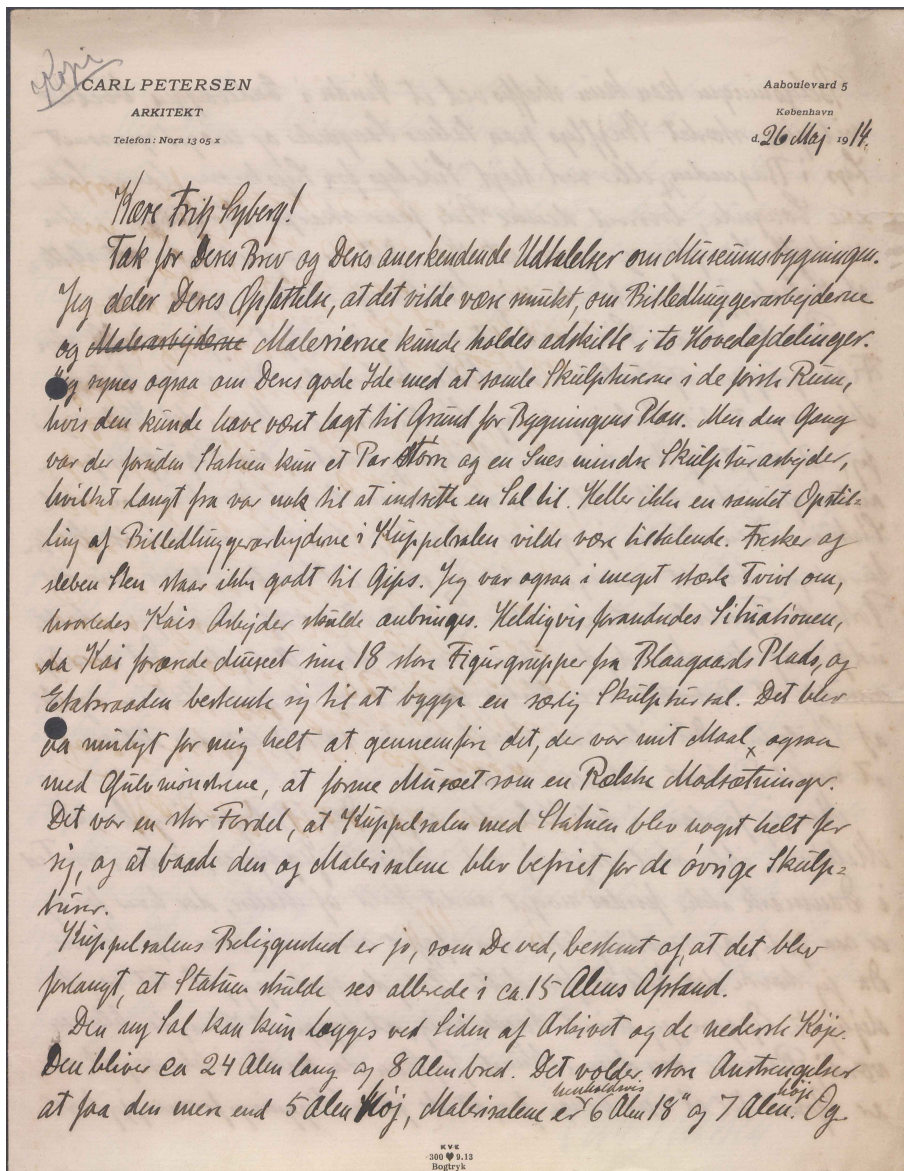 Kopi
CARL PETERSEN
ARKITEKT
Telefon: Nora 13 05 x
Aaboulevard 5
København
d. 26 Maj 1914.
Kære Fritz Syberg!
Tak for Deres Brev og Deres anerkendende Udtalelser om Museumsbygningen.
Jeg deler Deres Opfattelse, at det vilde være smukt, om Billedhuggerarbejderne
og Malerarbejderne Malerierne kunde holdes adskilte i to Hovedafdelinger.
Jeg synes ogsaa om Deres gode Ide med at samle Skulpturerne i de første Rum,
hvis den kunde have været lagt til Grund for Bygningens Plan. Men den Gang
var der foruden Statuen kun et Par større og en Snes mindre Skulpturarbejder,
hvilket langt fra var nok til at indrette en Sal til. Heller ikke en samlet Opstil-
ling af Billedhuggerarbejderne i Kuppelsalen vilde være tiltalende. Fresker og
sleben Sten staar ikke godt til Gips. Jeg var ogsaa i meget stærk Tvivl om,
hvorledes Kais Arbejder skulde anbringes. Heldigvis forandredes Situationen,
da Kai forærede Museet sine 18 store Figurgrupper fra Blaagaards Plads, og
Etatsraaden bestemte sig til at bygge en særlig Skulptursal. Det blev
da muligt for mig helt at gennemføre det, der var mit Maal x ogsaa
med Gulvmønstrene, at forme Museet som en Række Modsætninger.
Det var en stor Fordel, at Kuppelsalen med Statuen blev noget helt for
sig, og at baade den og Malerisalene blev befriet for de øvrige Skulp-
turer.
Kuppelsalens Beliggenhed er jo, som De ved, bestemt af, at det blev
forlangt, at Statuen skulde ses allerede i ca. 15 Alens Afstand.
Den ny Sal kan kun lægges ved Siden af Arkivet og de nederste Køje.
Den bliver ca 24 Alen lang og 8 Alen bred. Det volder store Anstrengelser
at faa den mere end 5 Alen høj, Malerisalene er henholdsvis 6 Alen 18" og 7 Alen høje. Og
KVK
300 ♥ 9.13
Bogtryk